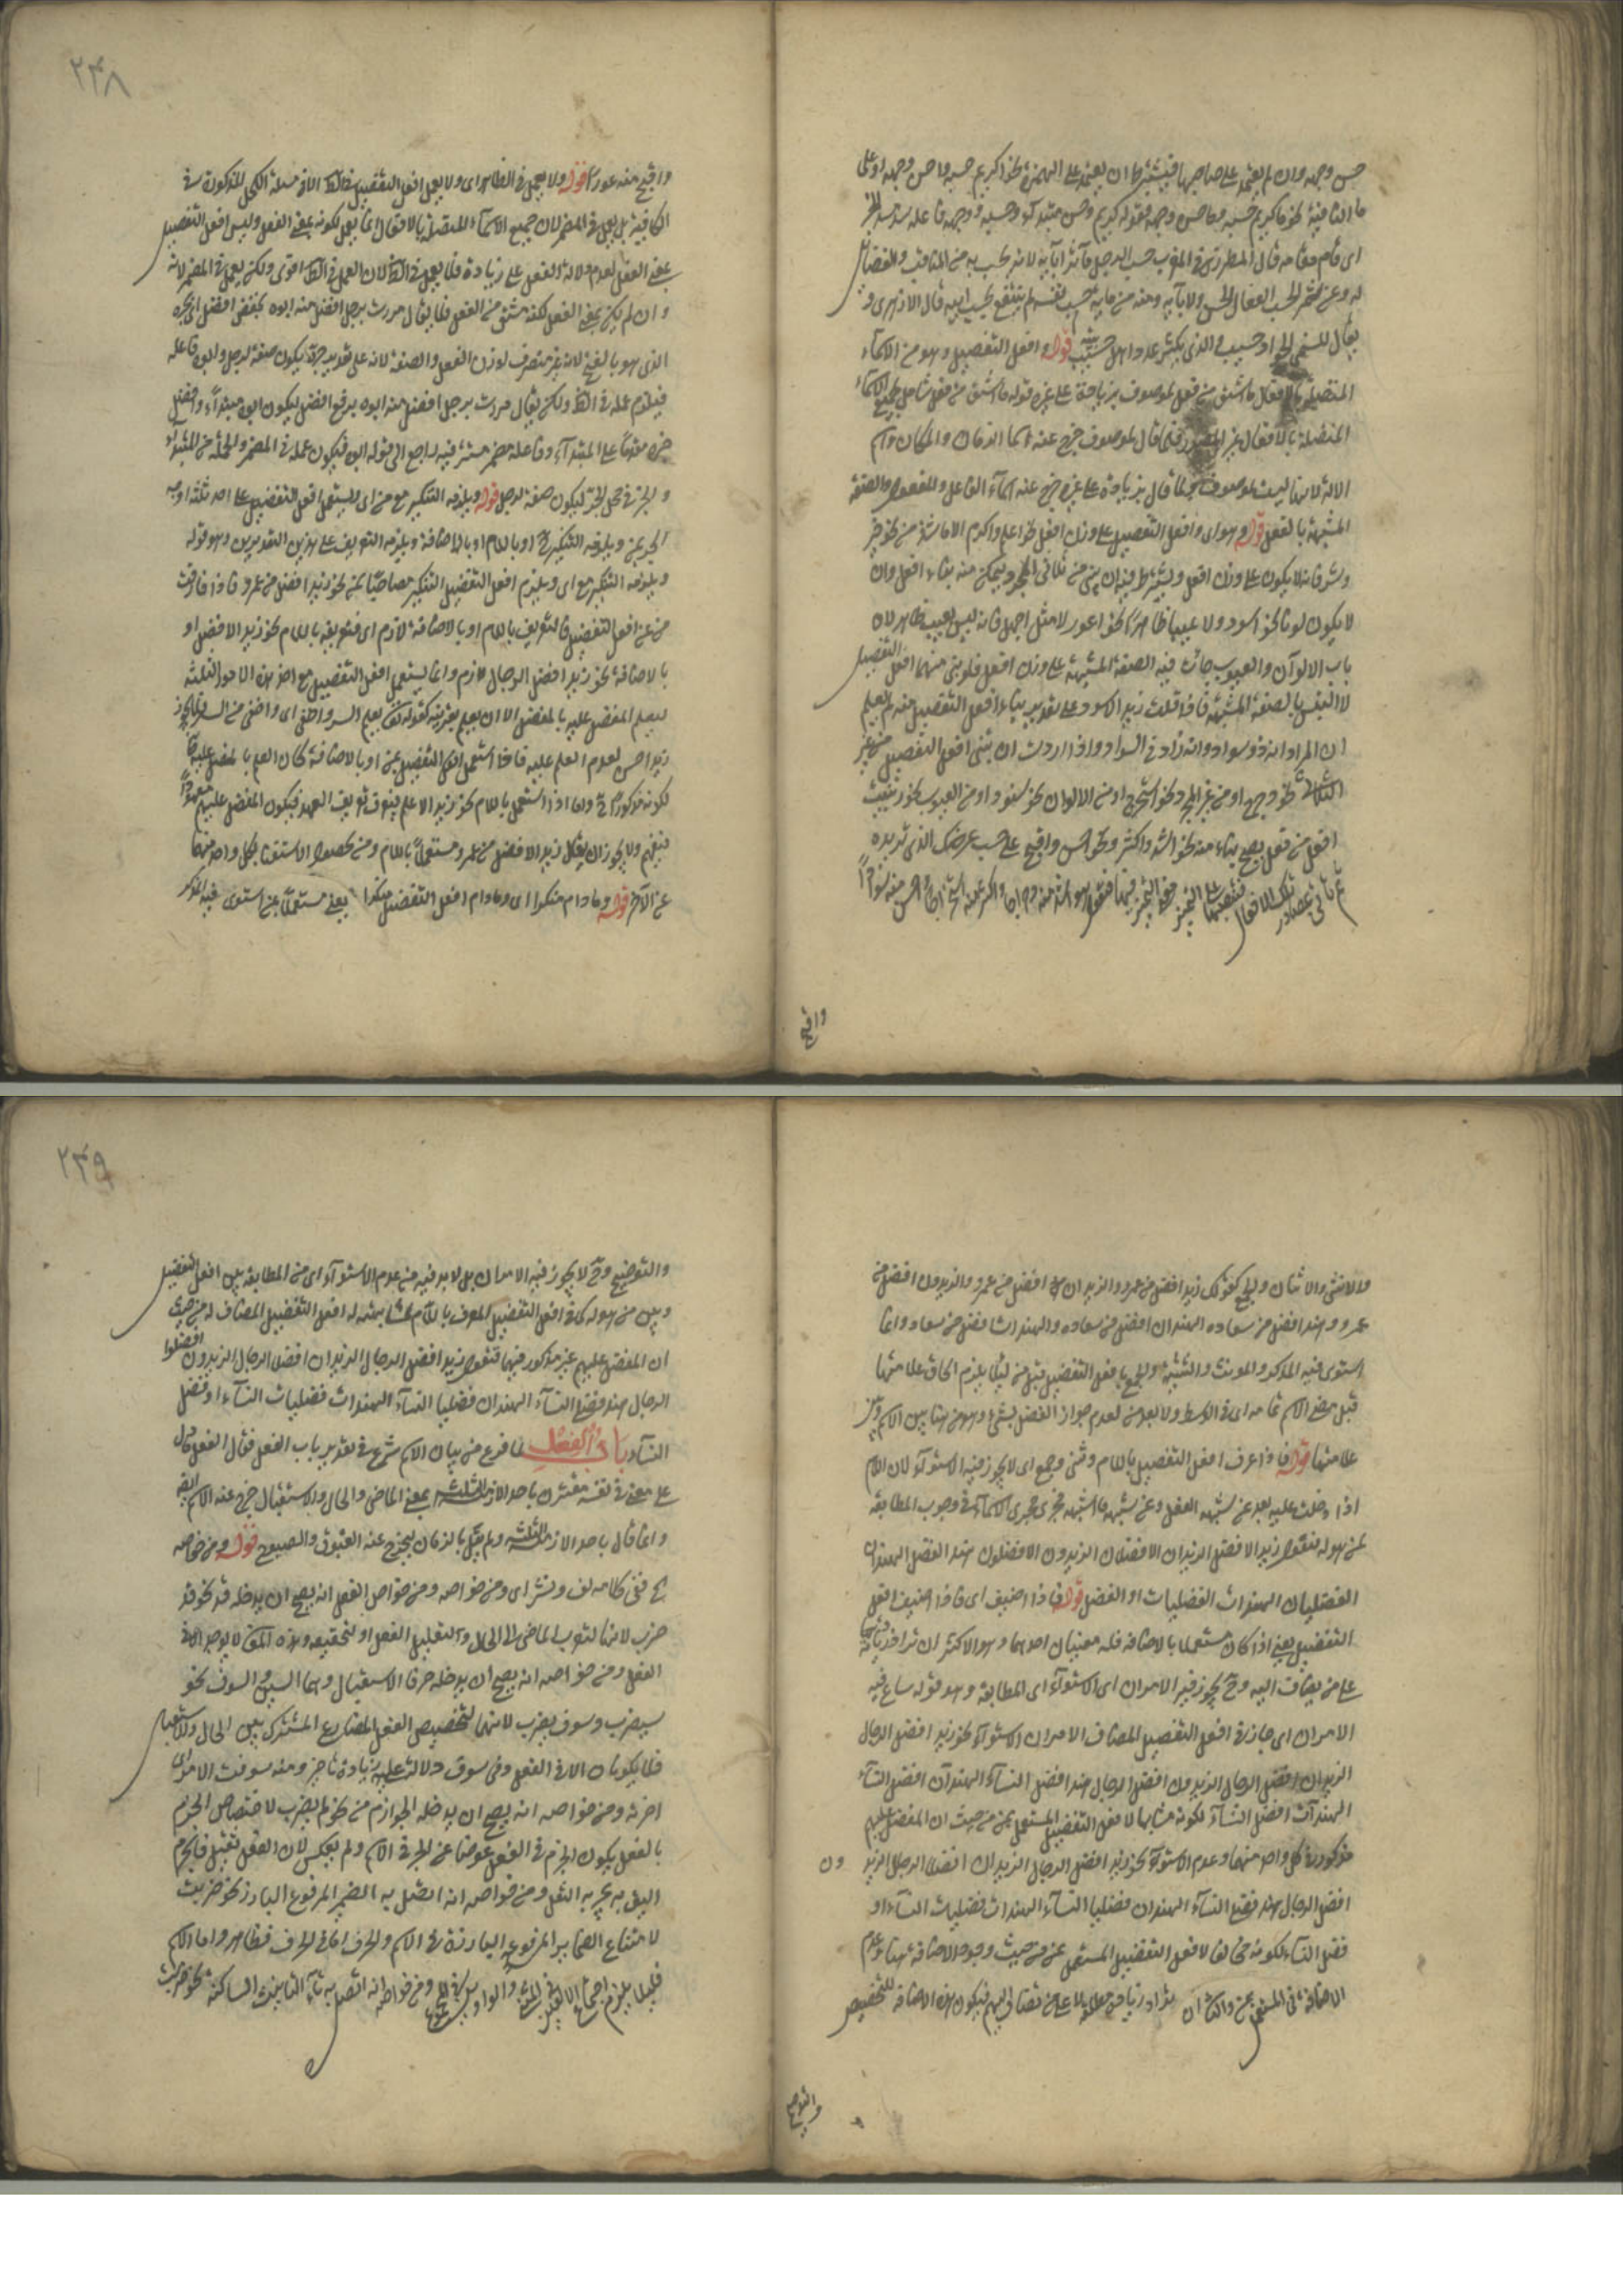 حسن وجهه وان لم يعتمد على صاحبها فيشترط ان يعتمد على الهمزة نحو اكريم حسبه واحسن وجهه او على
ما النافية نحو ما كريم حسبه وما حسن وجهه فقوله كريم وحسن مبتدأ وحسبه ووجهه فاعله سد مسد الخبر
اى قام مقامه قال المطرزى فى المغرب حسب الرجل مآثر آبائه لانه يحسب به من المناقب والفضائل
له وعن شمر الحسب الفعال الحسن له ولآبائه ومنه من فاته حسب نفسه لم ينتفع بحسب ابيه قال الازهرى و
يقال للسخى الجواد حسيب وللذى يكثر عدد اهل بيته حسيب قوله وافعل التفضيل وهو من الاسماء
المتصلة بالافعال ما اشتق من فعل لموصوف بزيادة على غيره قوله ما اشتق من فعل شامل لجميع الاسماء
المتصلة بالافعال غير المصدر فلما قال لموصوف خرج عنه اسما الزمان والمكان واسم
الالة لانها ليست لموصوف فلما قال بزيادة على غيره خرج عنه اسماء الفاعل والمفعول والصفة
المشبهة بالفعل قوله وهو اى وافعل التفضيل على وزن افعل نحو اعلم واكرم الا ما شذ من نحو خير
وشر فانه لا يكون على وزن افعل ويشترط فيه ان يبنى من ثلاثى مجرد يمكن منه بناء افعل وان
لا يكون لونا نحو اسود ولا عيبا ظاهرا نحو اعور لا مثل اجهل فانه ليس بعيب ظاهر لان
باب الالوان والعيوب جائت فيه الصفة المشبهة على وزن افعل فلو بنى منهما افعل التفضيل
لالتبس بالصفة المشبهة فاذا قلت زيد الاسود على تقدير بناء افعل التفضيل منه لم يعلم
ان المراد انه ذو سواد وانه زاد فى السواد واذا اردت ان تبنى افعل التفضيل من غير
الثلاثى نحو دحرج او من غير المجرد نحو استخرج او من الالوان نحو سود او من العيوب نحو عور بنيت
افعل من فعل يصح بناءه منه نحو اشد واكثر ونحو احسن واقبح على حسب غرضك الذى تريده
ثم تأتى بمصادر تلك الافعال فتنصبها على التمييز فتقول هو اشد منه دحرجة واكثر منه استخراجا واحسن منه سوادا
واقبح
٢٣٨
واقبح منه عورا قوله ولا يعمل فى الظاهر اى ولا يعمل افعل التفضيل فى الظاهر الا فى مسئلة الكحل المذكورة فى
الكافية بل يعمل فى المضمر لان جميع الاسماء المتصلة بالافعال انما يعمل لكونه بمعنى الفعل وليس افعل التفضيل
بمعنى الفعل لعدم دلالة الفعل على زيادة فلا يعمل فى الظاهر لان العمل فى الظاهر اقوى ولكن يعمل فى المضمر لانه
وان لم يكن بمعنى الفعل لكنه مشتق من الفعل فلا يقال مررت برجل افضل منه ابوه بخفض افضل اى بجره
الذى هو بالفتح لانه غير منصرف لوزن الفعل والصفة لانه على تقدير جره يكون صفة لرجل وابوه فاعله
فيلزم عمله فى الظاهر ولكن يقال مررت برجل افضل منه ابوه برفع افضل ليكون ابوه مبتدأ وافضل
خبره مقدما على المبتدأ وفاعله مضمر مستتر فيه راجع الى قوله ابوه فيكون عمله فى المضمر والجملة من المبتدأ
والخبر فى محل الجر ليكون صفة لرجل قوله ويلزمه التنكير مع من اى يستعمل افعل التفضيل على احد ثلثة اوجه
اما بمن ويلزمه التنكير او باللام او بالاضافة ويلزمه التعريف على هذين التقديرين وهو قوله
ويلزمه التنكير مع اى ويلزم افعل التفضيل التنكير مصاحبا بمن نحو زيد افضل من عمرو فاذا فارقت
من عن افعل التفضيل فالتعريف باللام او بالاضافة لازم اى فتعريفه باللام نحو زيد الافضل او
بالاضافة نحو زيد افضل الرجال لازم وانما يستعمل افعل التفضيل مع احد هذه الامور الثلثة
ليعلم المفضل عليه بالمفضل الا ان يعلم بقرينة كقوله تعالى يعلم السر واخفى اى واخفى من السر فلا يجوز
زيد احسن لعدم العلم عليه فاذا استعمل افعل التفضيل بمن او بالاضافة كان العلم بالمفضل عليه
لكونه مذكورا واما اذا استعمل باللام نحو زيد الاعلم بتعريف العهد فيكون المفضل عليهم معهودا
فيفهم ولا يجوز ان يقال زيد الافضل من عمرو مستعملا باللام ومن لحصول الاستغناء بكل واحد منهما
عن الآخر قوله وما دام منكرا اى وما دام افعل التفضيل منكرا يعنى مستعملا بمن استوى فيه المذكر
والانثى والاثنان والجمع كقولك زيد افضل من عمرو والزيدان افضل من عمرو والزيدون افضل من
عمرو وهند افضل من سعاد والهندان افضل من سعاد والهندات افضل من سعاد وانما
استوى فيه المذكر والمونث والتثنية والجمع بافعل التفضيل قبل من لئلا يلزم الحاق علامتها
قبل مضى الاسم تمامه اى فى الوسط ولا بعد من لعدم جواز الفصل بشىء وهو من هنا بين الاسم وبين
علامتها قوله فاذا عرف افعل التفضيل باللام وثنى وجمع اى لا يجوز فيه الاستواء لان اللام
اذا دخلت عليه بعد عن شبهه الفعل وعن شبهه ما اشبهه فجرى مجرى الاسماء فى وجوب المطابقة
لمن هو له فتقول زيد الافضل الزيدان الافضلان الزيدون الافضلون هند الفضلى الهندان
الفضليان الهندات الفضليات او الفضل قوله فاذا اضيف اى فاذا اضيف افعل
التفضيل يعنى اذا كان مستعملا بالاضافة فله معنيان احدهما وهو الاكثر ان يراد به زيادة
على من يضاف اليه وح يجوز فيه الامران اى الاستواء اى المطابقة وهو قوله ساغ فيه
الامران اى جاز فى افعل التفضيل المضاف الامران الاستواء نحو زيد افضل الرجال
الزيدان افضل الرجال الزيدون افضل الرجال هند افضل النساء الهندان افضل النساء
الهندات افضل النساء لكونه مشابها لافعل التفضيل المستعمل بمن من حيث ان المفضل عليهم
مذكور فى كل واحد منهما وعدم الاستواء نحو زيد افضل الرجال الزيدان افضلا الرجال الزيد ون
افضل الرجال هند فضلى النساء الهندان فضليا النساء الهندات فضليات النساء او
فضل النساء لكونه مخالفا لافعل التفضيل المستعمل بمن من حيث وجود الاضافة هنا وعدم
الاضافة فى المستعمل بمن والثانى ان يراد زيادة مطلقة لا على من يضاف اليهم فيكون هذه الاضافة للتخصيص
والتوضيح
٢٣٩
والتوضيح وح لا يجوز فيه الامران بل لابد فيه من عدم الاستواء اى من المطابقة بين افعل التفضيل
وبين من هو له كما فى افعل التفضيل المعرف باللام لمشابهته له افعل التفضيل المضاف له من حيث
ان المفضل عليهم غير مذكور فيها فتقول زيد افضل الرجال الزيدان افضلا الرجال الزيدون افضلوا
الرجال هند فضلى النساء الهندان فضليا النساء الهندات فضليات النساء او فضل
النساء باب الفعل لما فرغ من بيان الاسم شرع فى تقدير باب الفعل فقال الفعل ما دل
على معنى فى نفسه مقترن باحد الازمنة الثلثة يعنى الماضى والحال والاستقبال خرج عنه الاسم
وانما قال باحد الازمنة الثلثة ولم يقل بالزمان ليخرج عنه الغبوق والصبوح قوله ومن خواصه
صح فى كلامه لف ونشر اى ومن خواصه ومن خواص الفعل انه يصح ان يدخله قد نحو قد
ضرب لانها لتقريب الماضى الى الحال ولتقليل الفعل او لتحقيقه وهذه المعانى لا يوجد الا فى
الفعل ومن خواصه انه يصح ان يدخله حرفا الاستقبال وهما السين والسوف نحو
سيضرب وسوف يضرب لانهما لتخصيص الفعل المضارع المشترك بين الحال والاستقبال
فلا يكونان الا فى الفعل وفى سوف دلالة على زيادة تأخير ومنه سوفت الامر اى
اخرته ومن خواصه انه يصح ان يدخله الجوازم من نحو لم يضرب لاختصاص الجزم
بالفعل ليكون الجزم فى الفعل عوضا عن الجر فى الاسم ولم يعكس لان الفعل ثقيل فالجزم
اليق به لجبر به الثقل ومن خواصه انه اتصل به الضمير المرفوع البارز نحو ضربت
لامتناع الضماير المرفوعة البارزة فى الاسم والحرف اما فى الحرف فظاهر واما الاسم
فلئلا يلزم اجتماع الالفين فى المثنى والواوين فى الجمع ومن خواصه انه اتصل به تاء التانيث الساكنة نحو ضربت